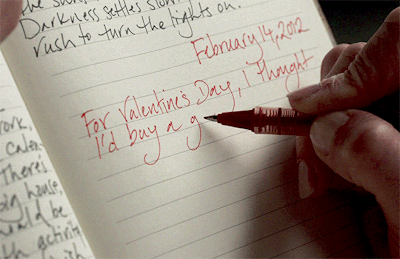 Darkness settles
rush to turn the lights on.
February 14, 2012
For Valentine's Day, I thought
I'd buy a g
work,
There's
big house,
would be